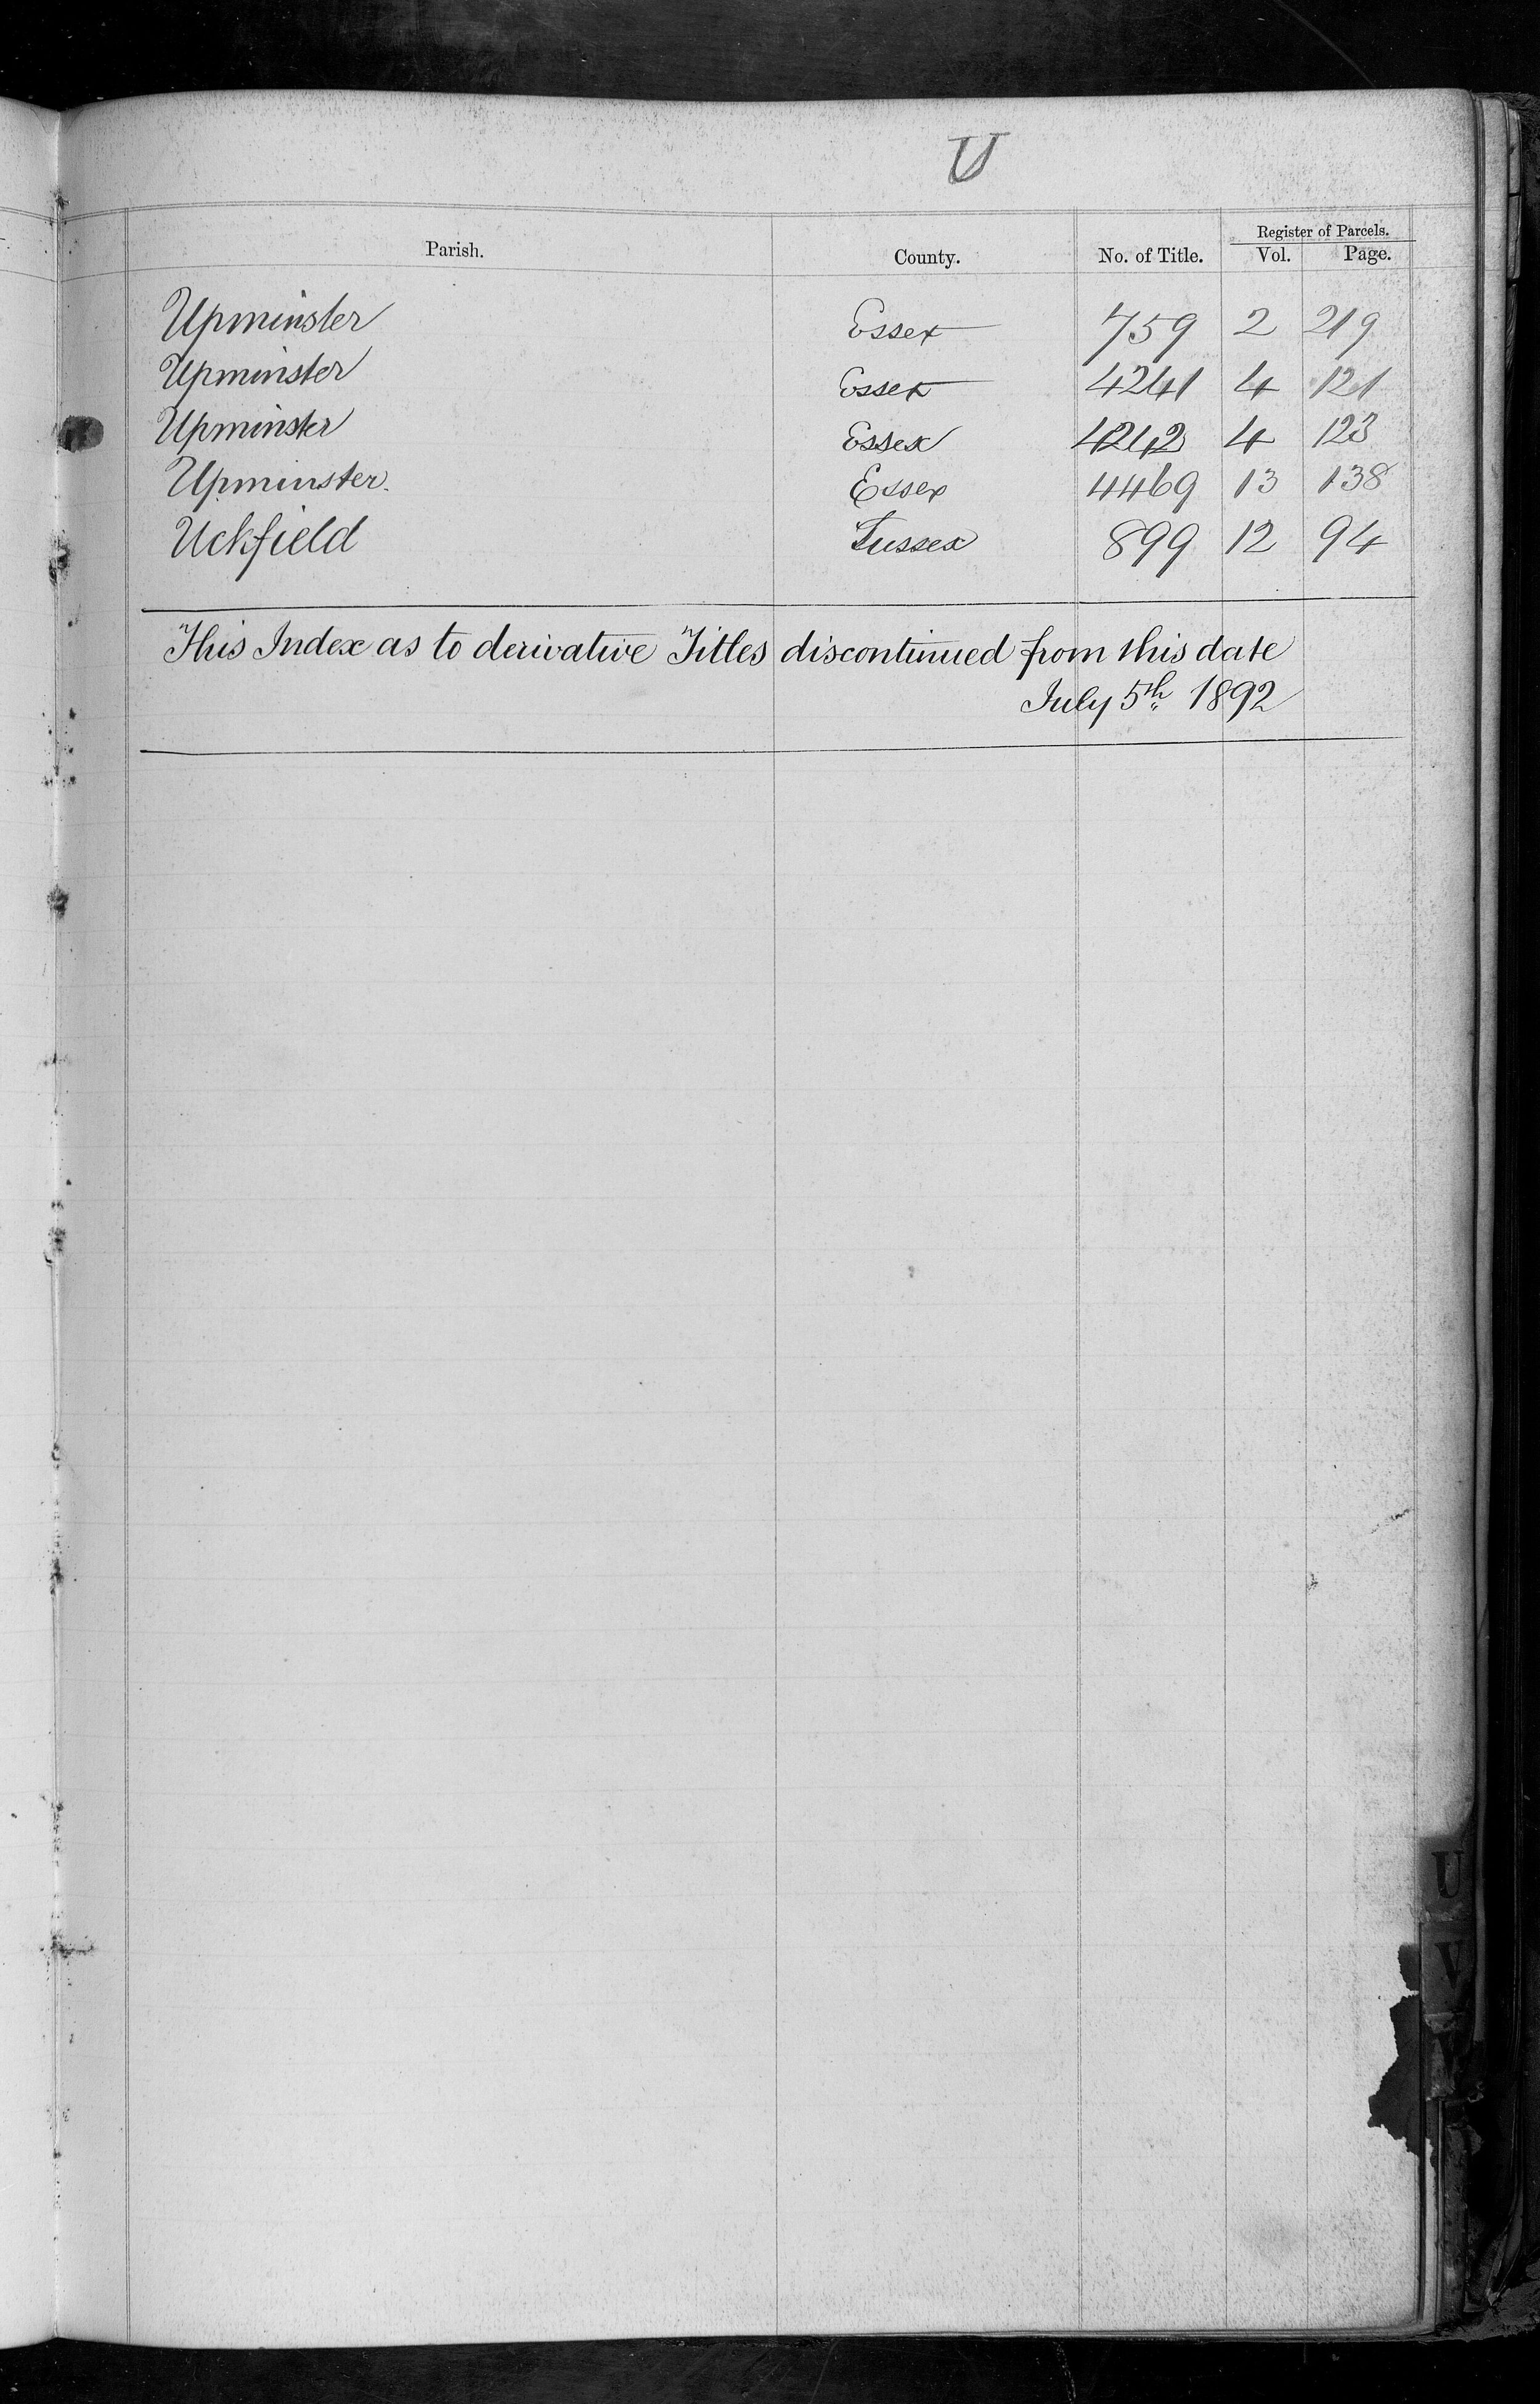 U
Register of Parcels.
Parish. County. No. of Title. Vol. Page.
Upminster Essex 759 2 219
Upminster Essex 4241 4 121
Upminster Essex 4242 4 123
Upminster. Essex 4469 13 138
Uckfield Sussex 899 12 94
This Index as to derivative Titles discontinued from this date
July 5th 1892
U
V